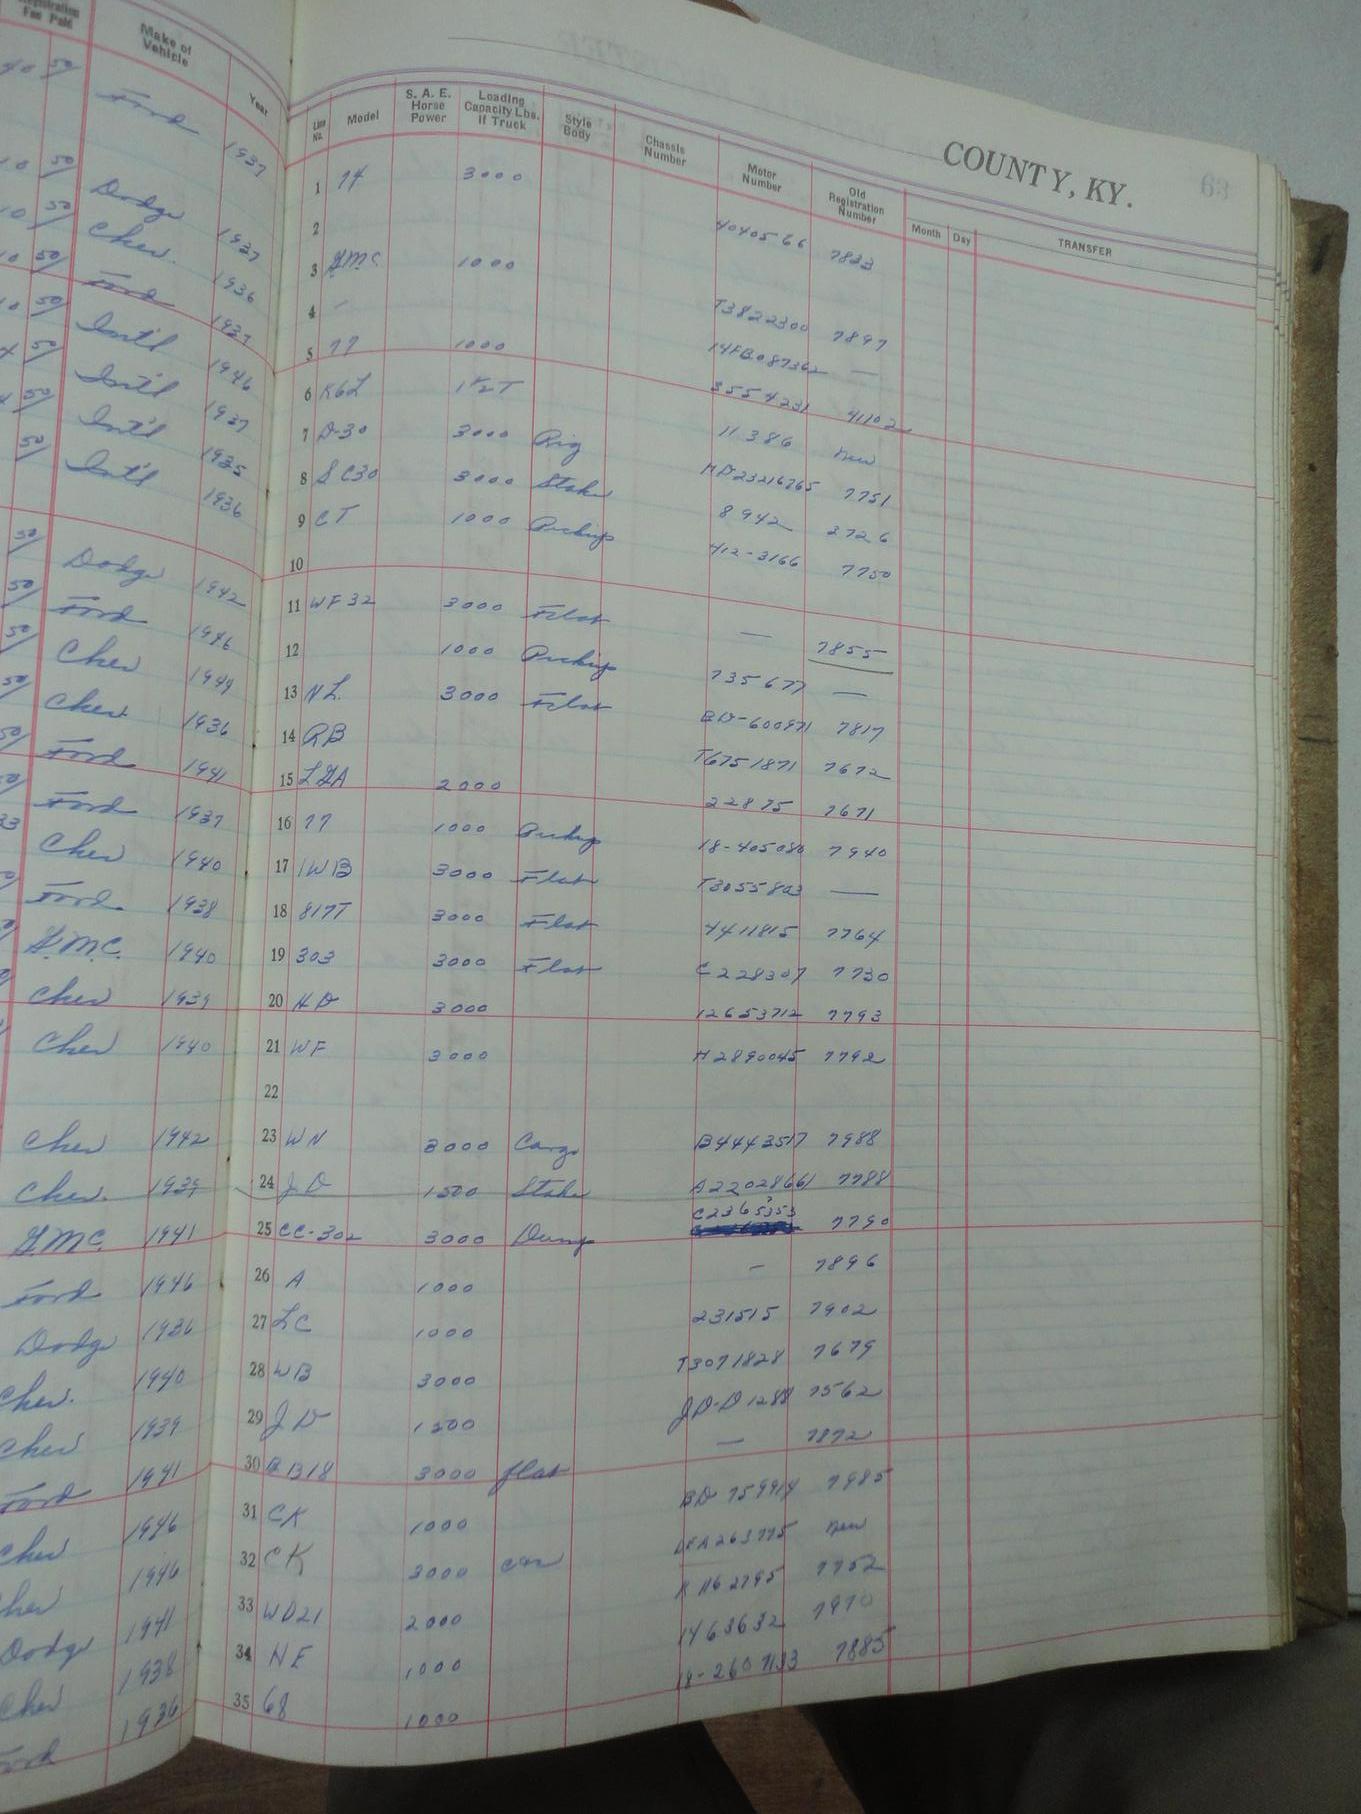 Registration Fee Paid | Make of Vehicle | Year | Line No. | Model | S. A. E. Horse Power | Loading Capacity Lbs. If Truck | Style Body | Chassis Number | Motor Number | Old Registration Number | Month | Day | TRANSFER
COUNTY, KY. 63
50 Ford 1937
50 Dodge 1937
50 Chev. 1936
50 Ford 1937
50 Int'l 1946
50 Int'l 1937
50 Int'l 1935
50 Int'l 1936
50 Dodge 1942
50 Ford 1946
50 Chev 1944
50 Chev 1936
50 Ford 1941
Ford 1937
Chev 1940
Ford 1938
G.M.C. 1940
Chev 1939
Chev 1940
Chev 1942
Chev. 1939
G.M.C. 1941
Ford 1946
Dodge 1936
Chev. 1940
Chev 1939
Ford 1941
Chev 1946
Chev 1946
Dodge 1941
Chev 1938
Ford 1936
1 74 3000 4040566 7833
2
3 G.M.C. 1000 T3822300 7897
4 —
5 77 1000 3554231 41102
6 K6L 1 1/2 T 11386 New
7 D-30 3000 Rig 7751
8 SC30 3000 Stake 8942 3726
9 CT 1000 Pickup 412-3166 7750
10
11 WF32 3000 Flat — 7855
12 1000 Pickup 735677 —
13 NL 3000 Flat 7817
14 RB T6751871 7672
15 LGA 2000 22875 7671
16 77 1000 Pickup 18-405080 7940
17 1WB 3000 Flat T3055803 —
18 817T 3000 Flat 4411815 7764
19 303 3000 Flat C228307 7730
20 ND 3000 12653712 7793
21 WF 3000 H2890045 7792
22
23 WN 3000 Cargo B4443517 7988
24 JD 1500 Stake A22028661 7788
25 CC-302 3000 Dump C2365353 7790
26 A 1000 — 7896
27 LC 1000 231515 7902
28 WB 3000 T3071828 7679
29 JD 1500 JD-D1288 7562
30 BB18 3000 flat — 7872
31 CK 1000 7985
32 CK 3000 New
33 WD21 2000 7752
34 NE 1000 1463632 7970
35 68 1000 18-2607133 7885